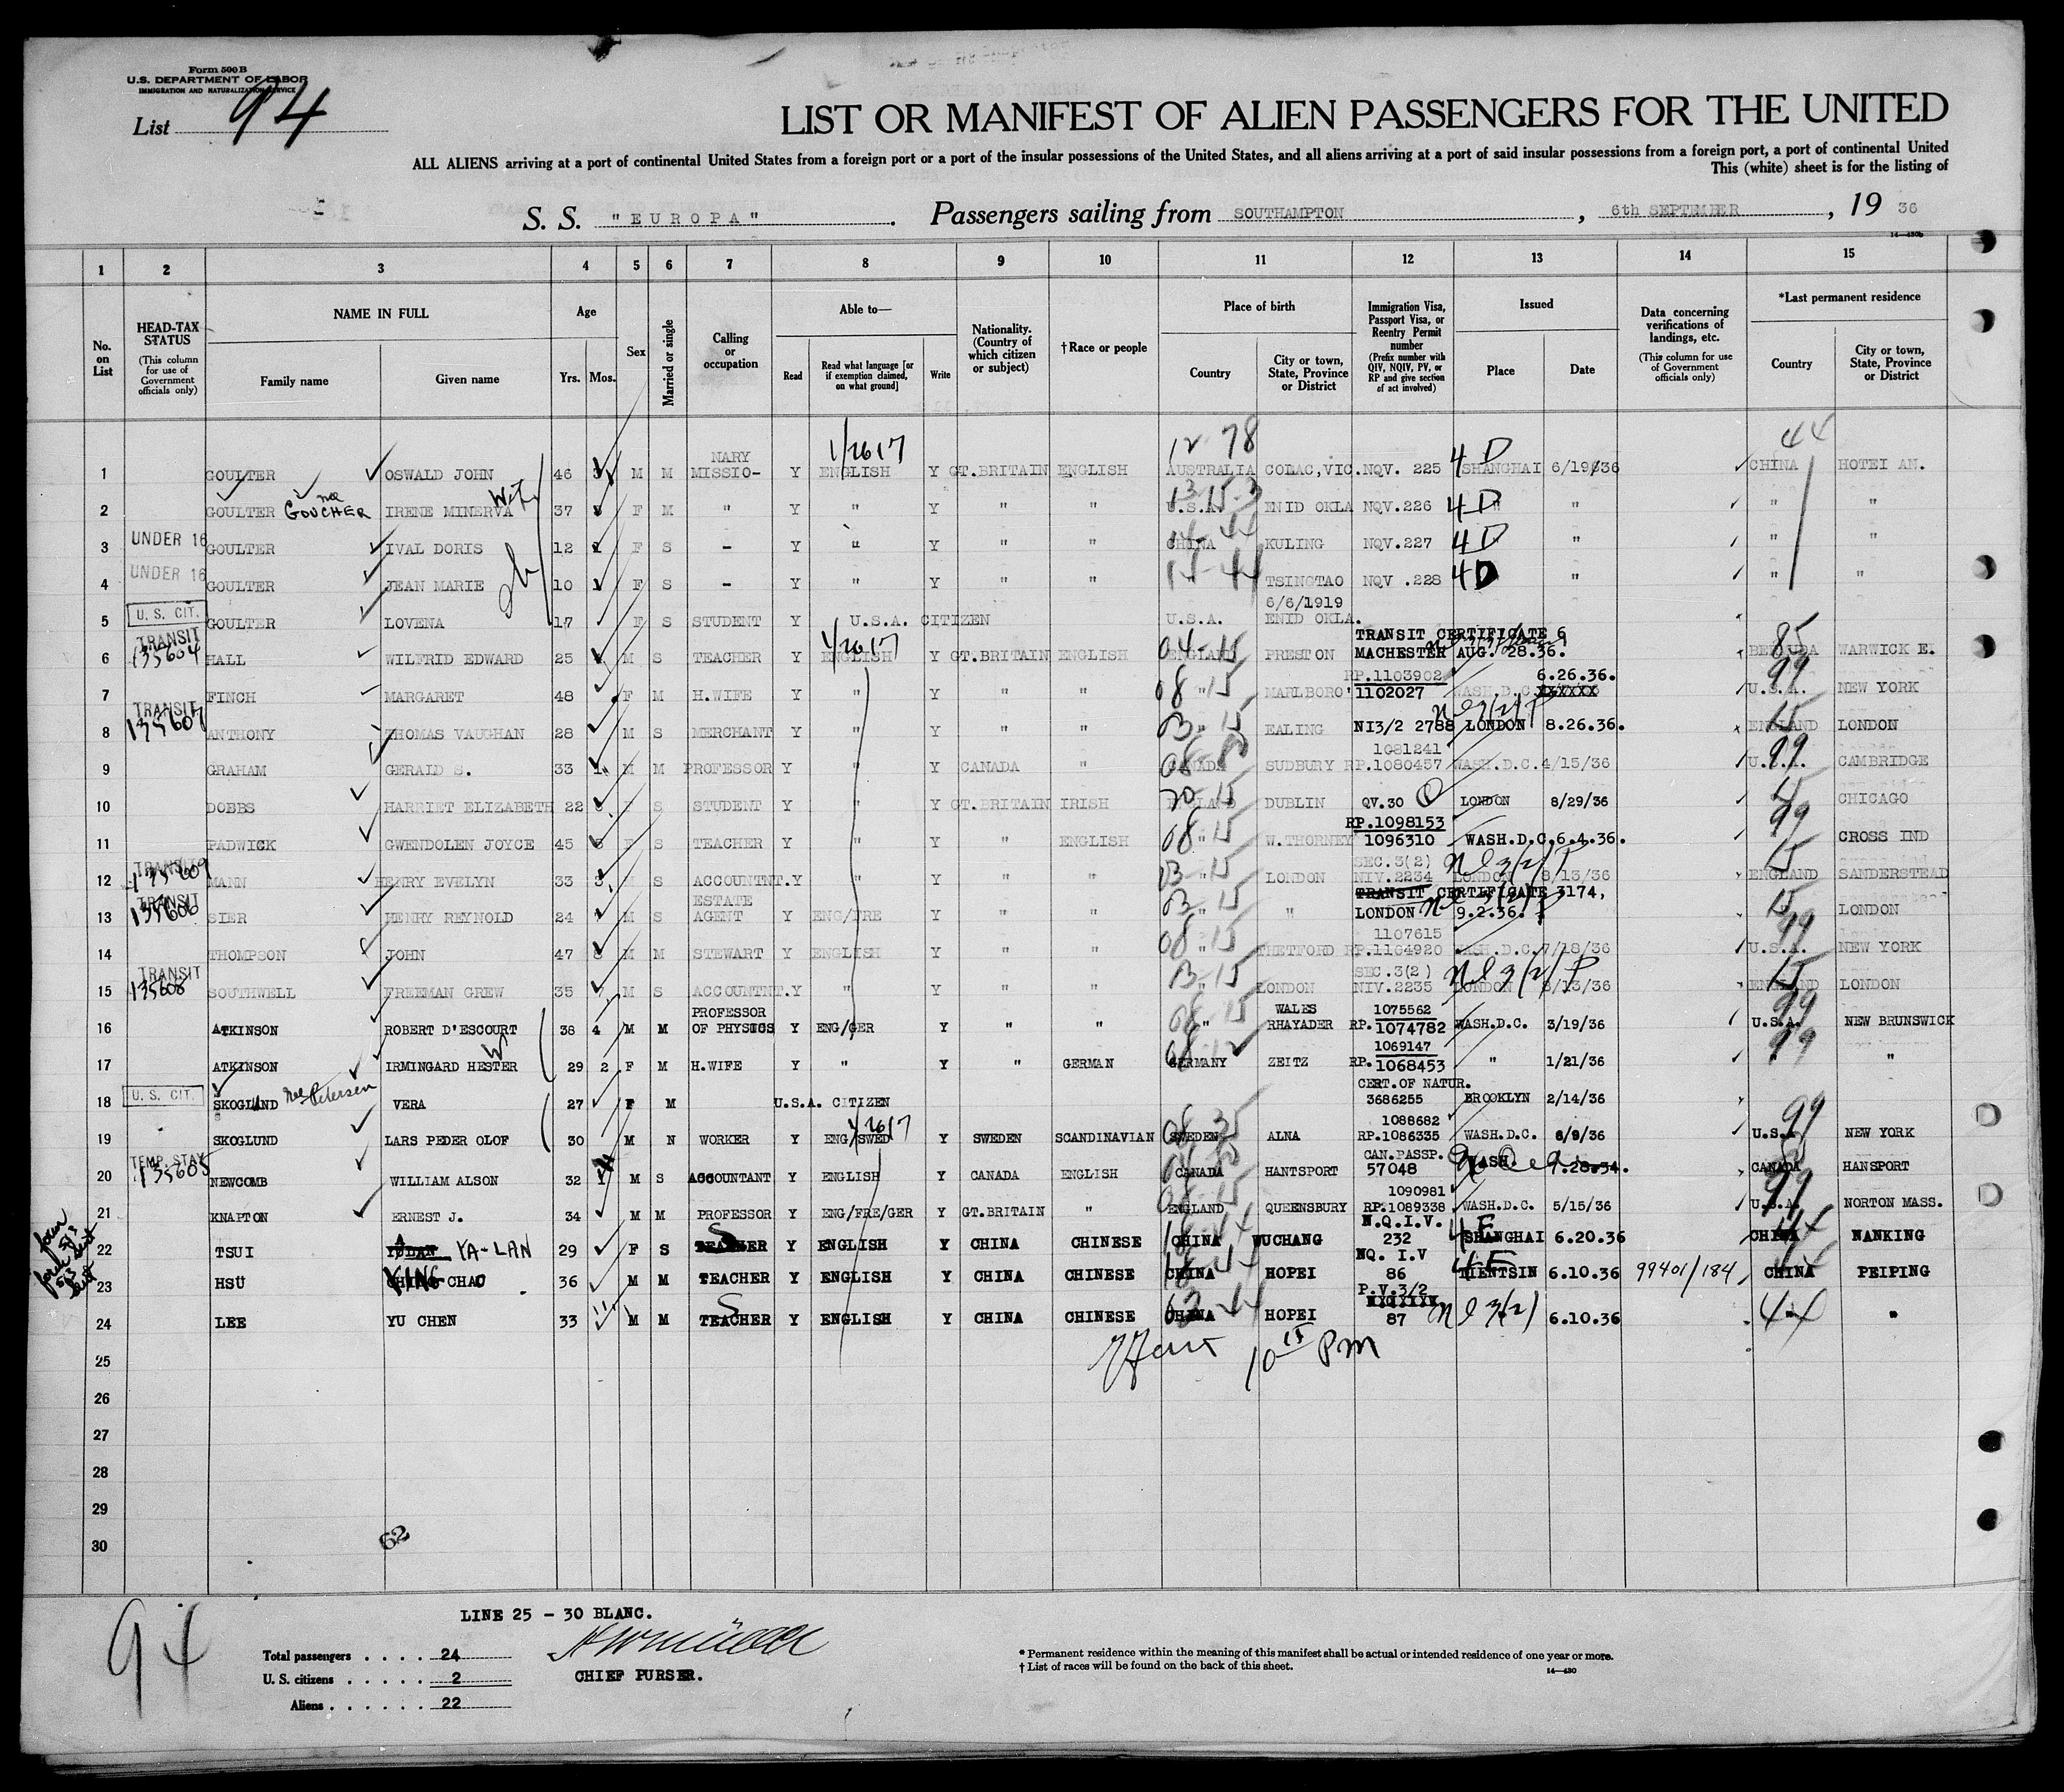 Form 500 B
U.S. DEPARTMENT OF LABOR
IMMIGRATION AND NATURALIZATION SERVICE
List 94
LIST OR MANIFEST OF ALIEN PASSENGERS FOR THE UNITED
ALL ALIENS arriving at a port of continental United States from a foreign port or a port of the insular possessions of the United States, and all aliens arriving at a port of said insular possessions from a foreign port, a port of continental United
This (white) sheet is for the listing of
S. S. "EUROPA". Passengers sailing from SOUTHAMPTON, 6th SEPTEMBER, 19 36
14—430b
1 2 3 4 5 6 7 8 9 10 11 12 13 14 15
No. on List
HEAD-TAX STATUS (This column for use of Government officials only)
NAME IN FULL Family name Given name
Age Yrs. Mos.
Sex
Married or single
Calling or occupation
Able to— Read Read what language [or if exemption claimed, on what ground] Write
Nationality. (Country of which citizen or subject)
†Race or people
Place of birth Country City or town, State, Province or District
Immigration Visa, Passport Visa, or Reentry Permit number (Prefix number with QIV, NQIV, PV, or RP and give section of act involved)
Issued Place Date
Data concerning verifications of landings, etc. (This column for use of Government officials only)
*Last permanent residence Country City or town, State, Province or District
1/2617 12 78 4D 44
1 GOULTER OSWALD JOHN 46 M M MISSIO-NARY Y ENGLISH Y GT.BRITAIN ENGLISH AUSTRALIA COLAC,VIC. NQV. 225 SHANGHAI 6/19/36 CHINA HOTEI AN.
2 GOULTER nee GOUCHER IRENE MINERVA 37 F M " Y " Y " " U.S.A. ENID OKLA NQV.226 4D " " " "
3 UNDER 16 GOULTER IVAL DORIS 12 F S - Y " Y " " CHINA KULING NQV.227 4D " " "
4 UNDER 16 GOULTER JEAN MARIE 10 F S - Y " Y " " " TSINGTAO NQV .228 4D " " "
5 U. S. CIT. GOULTER LOVENA 17 F S STUDENT Y U.S.A. CITIZEN U.S.A. 6/6/1919 ENID OKLA.
6 TRANSIT 135604 HALL WILFRID EDWARD 25 M S TEACHER Y ENGLISH 1/2617 Y GT.BRITAIN ENGLISH ENGLAND 04-15 PRESTON TRANSIT CERTIFICATE 6 MACHESTER AUG. 28.36. BERMUDA 85 WARWICK E.
7 FINCH MARGARET 48 F M H.WIFE Y " Y " " 08 " 15 MARLBORO' RP.1103902 1102027 WASH.D.C. 6.26.36. XXXXXX U.S.A. 99 NEW YORK
8 TRANSIT 135607 ANTHONY THOMAS VAUGHAN 28 M S MERCHANT Y " Y " " 03 " 15 EALING NI3/2 2788 LONDON 8.26.36. ENGLAND 15 LONDON
9 GRAHAM GERALD S. 33 M M PROFESSOR Y " Y CANADA " CANADA SUDBURY 1081241 RP.1080457 WASH.D.C. 4/15/36 U.S.A. 99 CAMBRIDGE
10 DOBBS HARRIET ELIZABETH 22 F S STUDENT Y " Y GT.BRITAIN IRISH DUBLIN QV.30 LONDON 8/29/36 15 CHICAGO
11 PADWICK GWENDOLEN JOYCE 45 F S TEACHER Y " Y " ENGLISH 08 " 15 W.THORNEY RP.1098153 1096310 WASH.D.C. 6.4.36. 99 CROSS IND
12 TRANSIT 135609 MANN HENRY EVELYN 33 S ACCOUNTNT. Y " Y " " 03 " 15 LONDON SEC.3(2) NIV.2234 LONDON 8/13/36 ENGLAND 15 SANDERSTEAD
13 TRANSIT 135606 SIER HENRY REYNOLD 24 M S ESTATE AGENT Y ENG/FRE Y " " 03 " 15 " TRANSIT CERTIFICATE 3174, LONDON 9.2.36. 15 LONDON
14 THOMPSON JOHN 47 M M STEWART Y ENGLISH Y " " 08 " 15 THETFORD 1107615 RP.1104920 WASH.D.C. 7/18/36 U.S.A. 99 NEW YORK
15 TRANSIT 135608 SOUTHWELL FREEMAN GREW 35 M S ACCOUNTNT. Y " Y " " " LONDON SEC.3(2) NIV.2235 LONDON 8/13/36 ENGLAND 15 LONDON
16 ATKINSON ROBERT D'ESCOURT 38 4 M M PROFESSOR OF PHYSICS Y ENG/GER Y " " " WALES RHAYADER 1075562 RP.1074782 WASH.D.C. 3/19/36 U.S.A. 99 NEW BRUNSWICK
17 ATKINSON IRMINGARD HESTER 29 2 F M H.WIFE Y " Y " GERMAN GERMANY ZEITZ 1069147 RP.1068453 " 1/21/36 " 99 "
18 U. S. CIT. SKOGLUND nee Petersen VERA 27 F M U.S.A. CITIZEN CERT.OF NATUR. 3686255 BROOKLYN 2/14/36
19 SKOGLUND LARS PEDER OLOF 30 M M WORKER Y ENG/SWED 1/2617 Y SWEDEN SCANDINAVIAN SWEDEN ALNA 1088682 RP.1086335 WASH.D.C. 6/9/36 U.S.A 99 NEW YORK
20 TEMP. STAY 135605 NEWCOMB WILLIAM ALSON 32 M S ACCOUNTANT Y ENGLISH Y CANADA ENGLISH CANADA HANTSPORT CAN.PASSP. 57048 WASH. 7.28.34. CANADA HANSPORT
21 KNAPTON ERNEST J. 34 M M PROFESSOR Y ENG/FRE/GER Y GT.BRITAIN " ENGLAND QUEENSBURY 1090981 RP.1089338 WASH.D.C. 5/15/36 U.S.A. 99 NORTON MASS.
22 TSUI YA-LAN 29 F S TEACHER S Y ENGLISH Y CHINA CHINESE CHINA WUCHANG N.Q.I.V. 232 4E SHANGHAI 6.20.36 CHINA 44 NANKING
23 HSÜ YING CHAO 36 M M TEACHER Y ENGLISH Y CHINA CHINESE CHINA HOPEI NQ. I.V 86 4E TIENTSIN 6.10.36 99401/184 CHINA PEIPING
24 LEE YU CHEN 33 M M TEACHER S Y ENGLISH Y CHINA CHINESE CHINA HOPEI P.V.3/2 87 6.10.36 44 "
10 15 PM
25
26
27
28
29
30
62
94
LINE 25 - 30 BLANC.
Total passengers . . . . 24
U. S. citizens . . . . . . 2
Aliens . . . . . . . 22
CHIEF PURSER.
* Permanent residence within the meaning of this manifest shall be actual or intended residence of one year or more.
† List of races will be found on the back of this sheet.
14—430